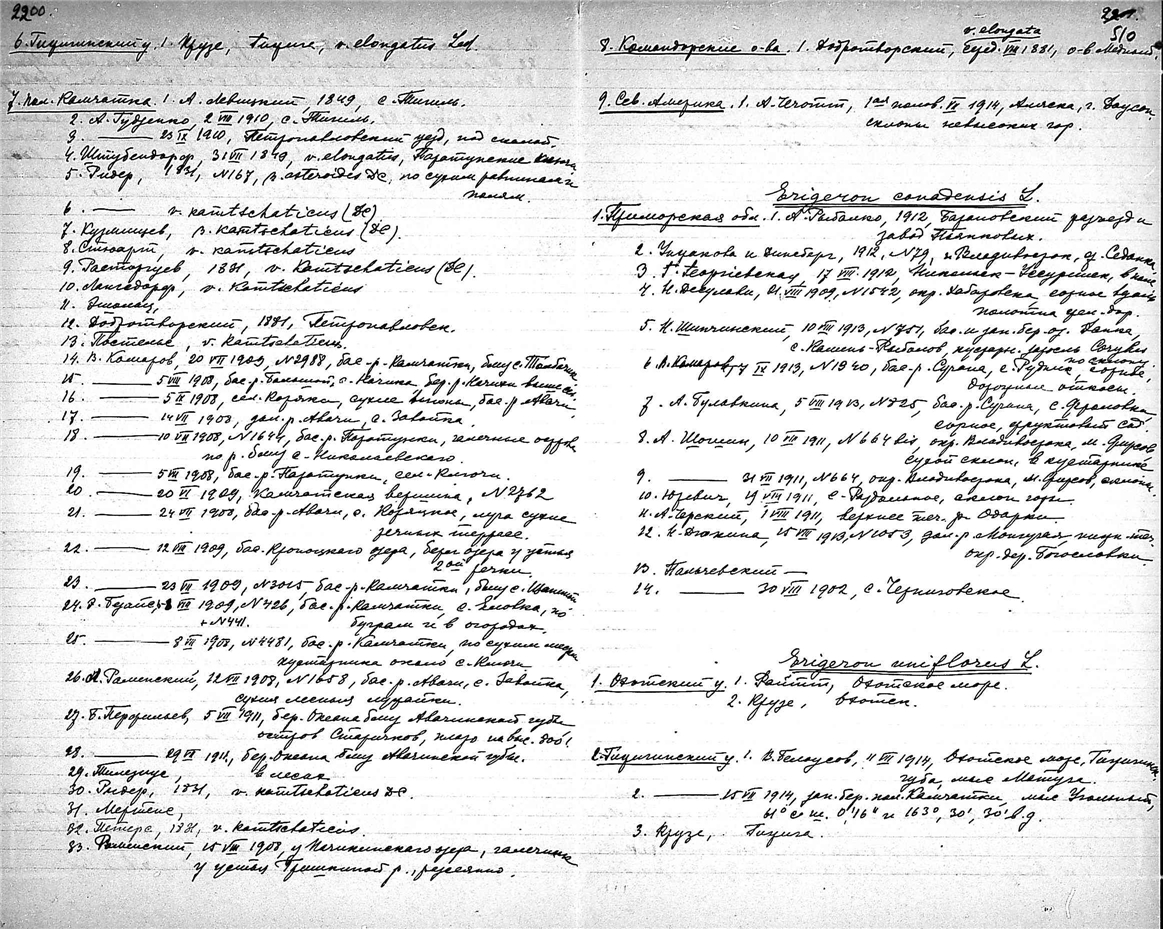 2200.
6. Гижигинский у. 1. Крузе, Гижига, v. elongatus Led.
7. пол. Камчатка. 1. А. Левицкий, 1849, с. Тигиль.
2. А. Гудзенко, 2 VIII 1910, с. Тигиль.
3. ——— 23 IX 1910, Петропавловский уезд, под скалой.
4. Штубендорф, 31 VII 1849, v. elongatus, Паратунские ключи
5. Ридер, 1831, N167, β. asteroides DC, по сухим равнинам и
полям.
6. ——— v. kamtschaticus (DC)
7. Кузмищев, β. kamtschaticus (DC).
8. Стюарт, v. kamtschaticus
9. Расторгуев, 1831, v. Kamtschaticus (DC).
10. Лангсдорф, v. Kamtschaticus
11.
12. Добротворский, 1881, Петропавловск.
13. Постельс, v. kamtschaticus.
14. В. Комаров, 20 VII 1909, N2988, бас. р. Камчатки, близ с. Толбачик
15. ——— 5 VIII 1908, бас. р. Большой, с. Начика, бер. р.
16. ——— 1908, сел. Коряки, сухие склоны, бас. р. Авачи.
17. ——— 14 VII 1908, дол. р. Авачи, с. Завойка.
18. ——— 10 VII 1908, N1644, бас. р. Паратунки, галечные острова
по р. близ с. Николаевского.
19. ——— 5 VII 1908, бас. р. Паратунки, сел. Ключи.
20. ——— 20 VI 1909, Камчатская вершина, N2762
21. ——— 24 VII 1908, бас. р. Авачи, с. Коряцкое, луга сухие
речных террасс.
22. ——— 12 VIII 1909, бас. Кроноцкого озера, берег озера у устья
2ой речки.
23. ——— 23 VII 1909, N3015, бас. р. Камчатки, близ с. Щапина
24. VII 1909, N426, бас. р. Камчатки, с. Еловка, по
+ N441. буграм и в огородах.
25. ——— 8 VII 1908, N4481, бас. р. Камчатки, по сухим
кустарника около с. Ключи
26. Раменский, 12 VII 1908, N1658, бас. р. Авачи, с. Завойка,
сухия лесныя лужайки.
27. Б. Перфильев, 5 VII 1911, бер. Океана близ Авачинской губы
остров Старичков,
28. ——— 29 VI 1911, бер. Океана близ Авачинской губы.
в лесах
29. Тилезиус,
30. Ридер, 1831, v. kamtschaticus DC.
31. Мертенс,
32. Петерс, 1831, v. kamtschaticus.
33. Раменский, 15 VIII 1908, у Начикинского озера, галечник
у устья р., рассеянно.
510
v. elongata
8. Командорские о-ва. 1. Добротворский, VIII 1881, о-в Медный.
9. Сев. Америка. 1. А. 1ая полов. VI 1914, Аляска, г. Доусон
склоны невысоких гор.
Erigeron canadensis L.
1. Приморская обл. 1. А. Рыбалко, 1912, Барановский разъезд и
завод Пьянковых.
2. и Динсберг, 1912, N79, г. Владивосток, д. Седанка
3. Г. Георгиевская, 17 VIII 1912, Никольск-Уссурийск,
4. Н. Десулави, 21 VIII 1909, N1542, окр. Хабаровска, сорное вдоль
полотна жел. дор.
5. Н. Шипчинский, 10 VIII 1913, N751, бас. и зап. бер. оз. Ханка,
с. Камень-Рыболов, кустарн. заросль Corylus
6. В. Комаров, 17 IX 1913, N1940, бас. р. Сучана, с. по склону,
дорожные откосы.
7. А. Булавкина, 5 VIII 1913, N825, бас. р. Сучана, с. Фроловка
сорное, фруктовый сад.
8. А. Шошин, 10 VII 1911, N664 bis, окр. Владивостока, м. Фирсов
сухой склон, в кустарнике
9. ——— 31 VII 1911, N664, окр. Владивостока, м. Фирсов, склоны.
10. Юревич, 19 VII 1911, с. Раздольное, склон горы
11. А. Черский, 1 VIII 1911, верхнее теч. р. Одарки.
12. Н. Дюкина, 15 VIII 1913, N1053, дол. р. Монгугая
окр. дер. Богословки.
13. Пальчевский —
14. ——— 30 VIII 1902, с. Черниговское.
Erigeron uniflorus L.
1. Охотский у. 1. Охотское море.
2. Крузе, Охотск.
2. Гижигинский у. 1. В. Белоусов, 11 VII 1914, Охотское море, Гижигинск.
губа, мыс Матуга.
2. ——— 15 VII 1914, зап. бер. пол. Камчатки, мыс Угольный,
61° с. ш. 0'16" и 163°, 30', 30" в. д.
3. Крузе, Гижига.